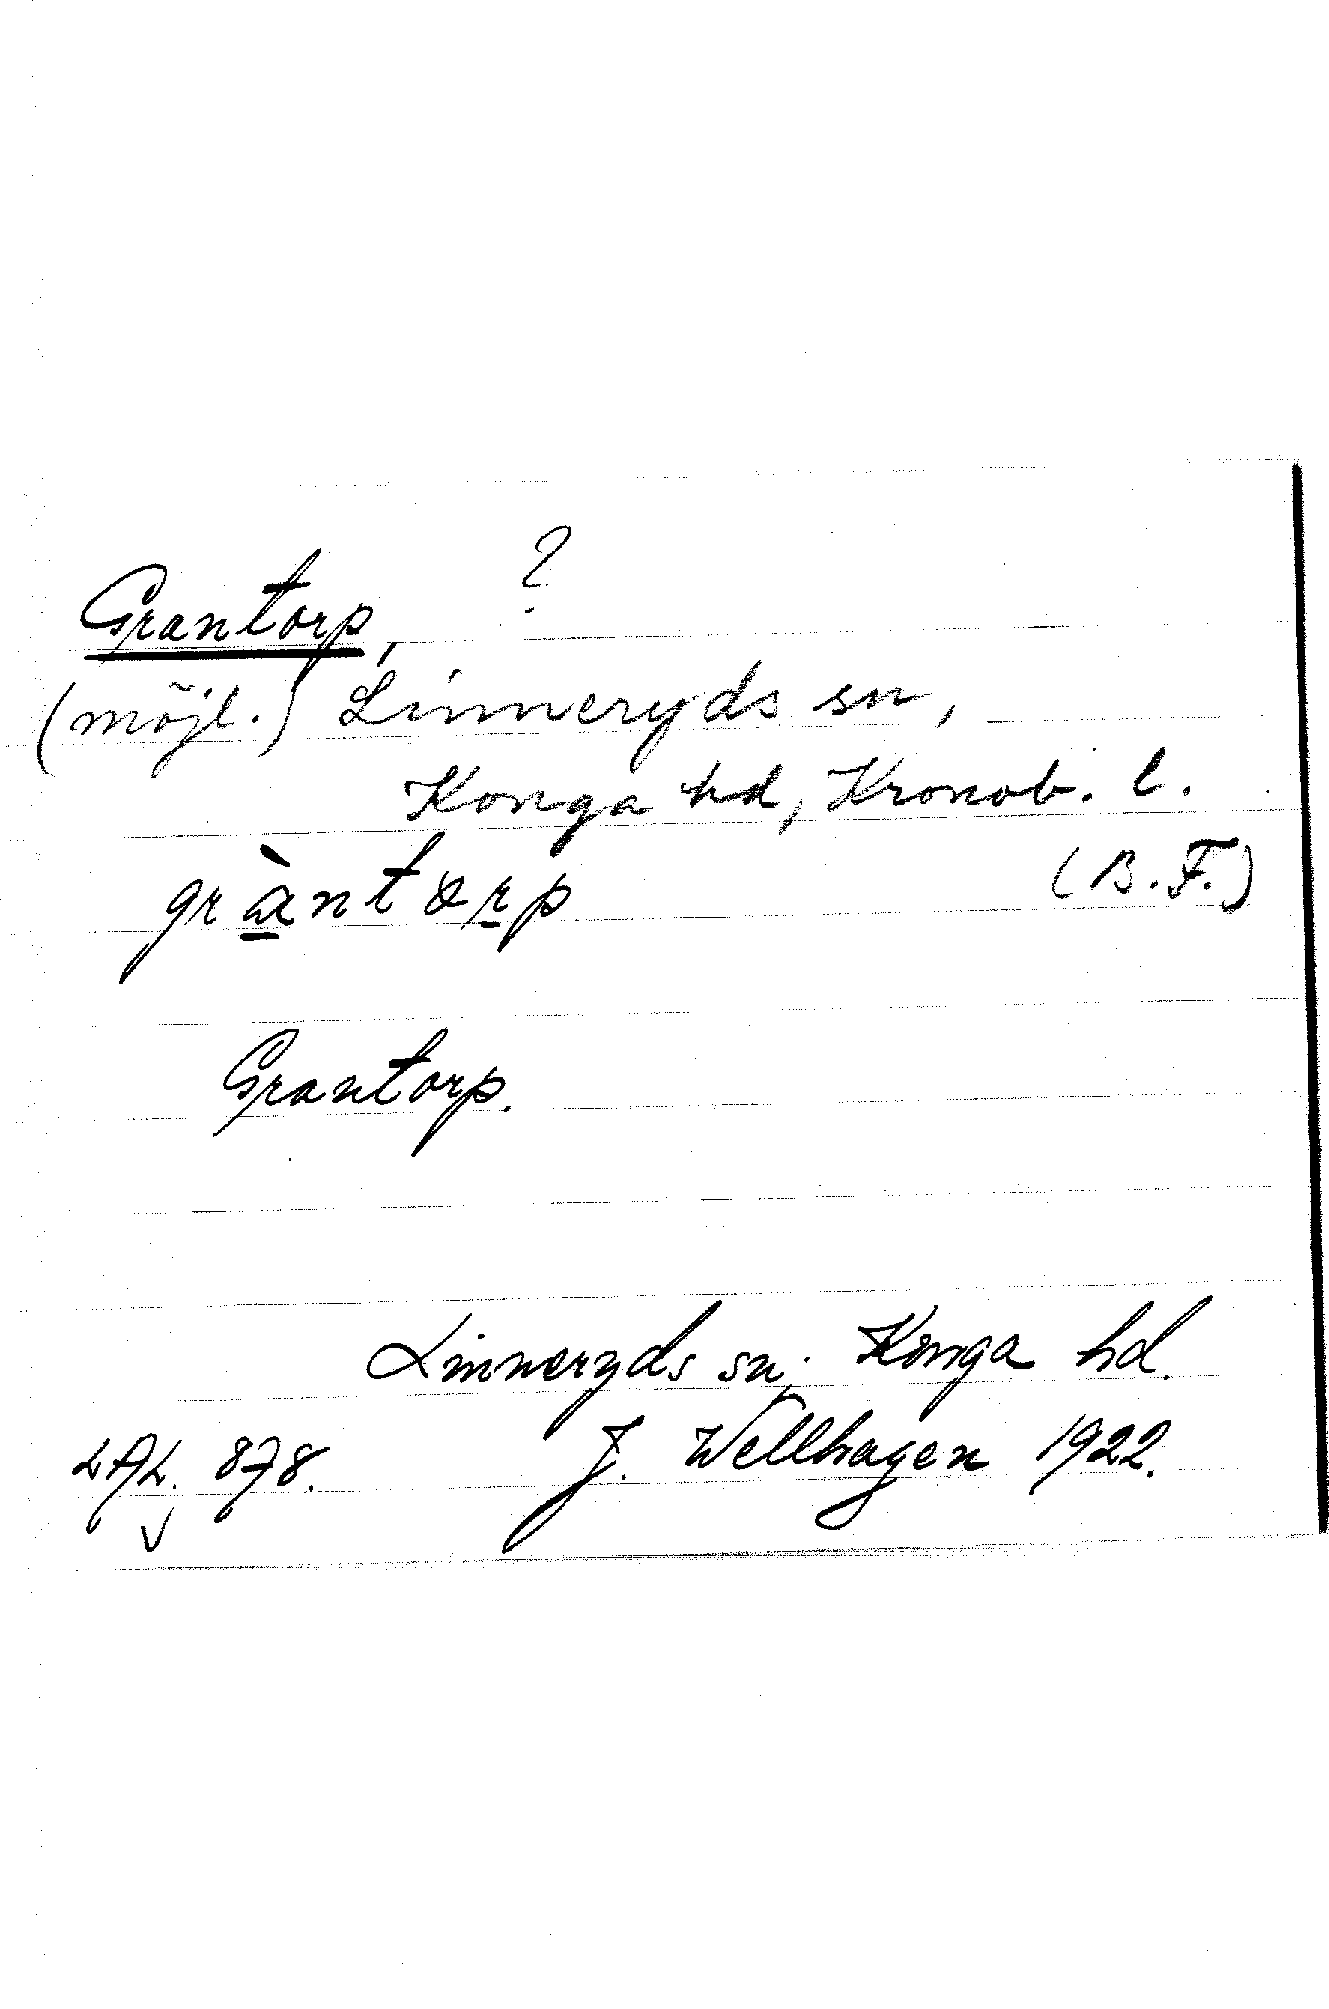 Grantorp, ?
(möjl.) Linneryds sn,
Konga hd, Kronob. l.
gràntorp (B.F.)
Grantorp.
Linneryds sn; Konga hd.
LAL. 878. J. Wellhagen 1922.